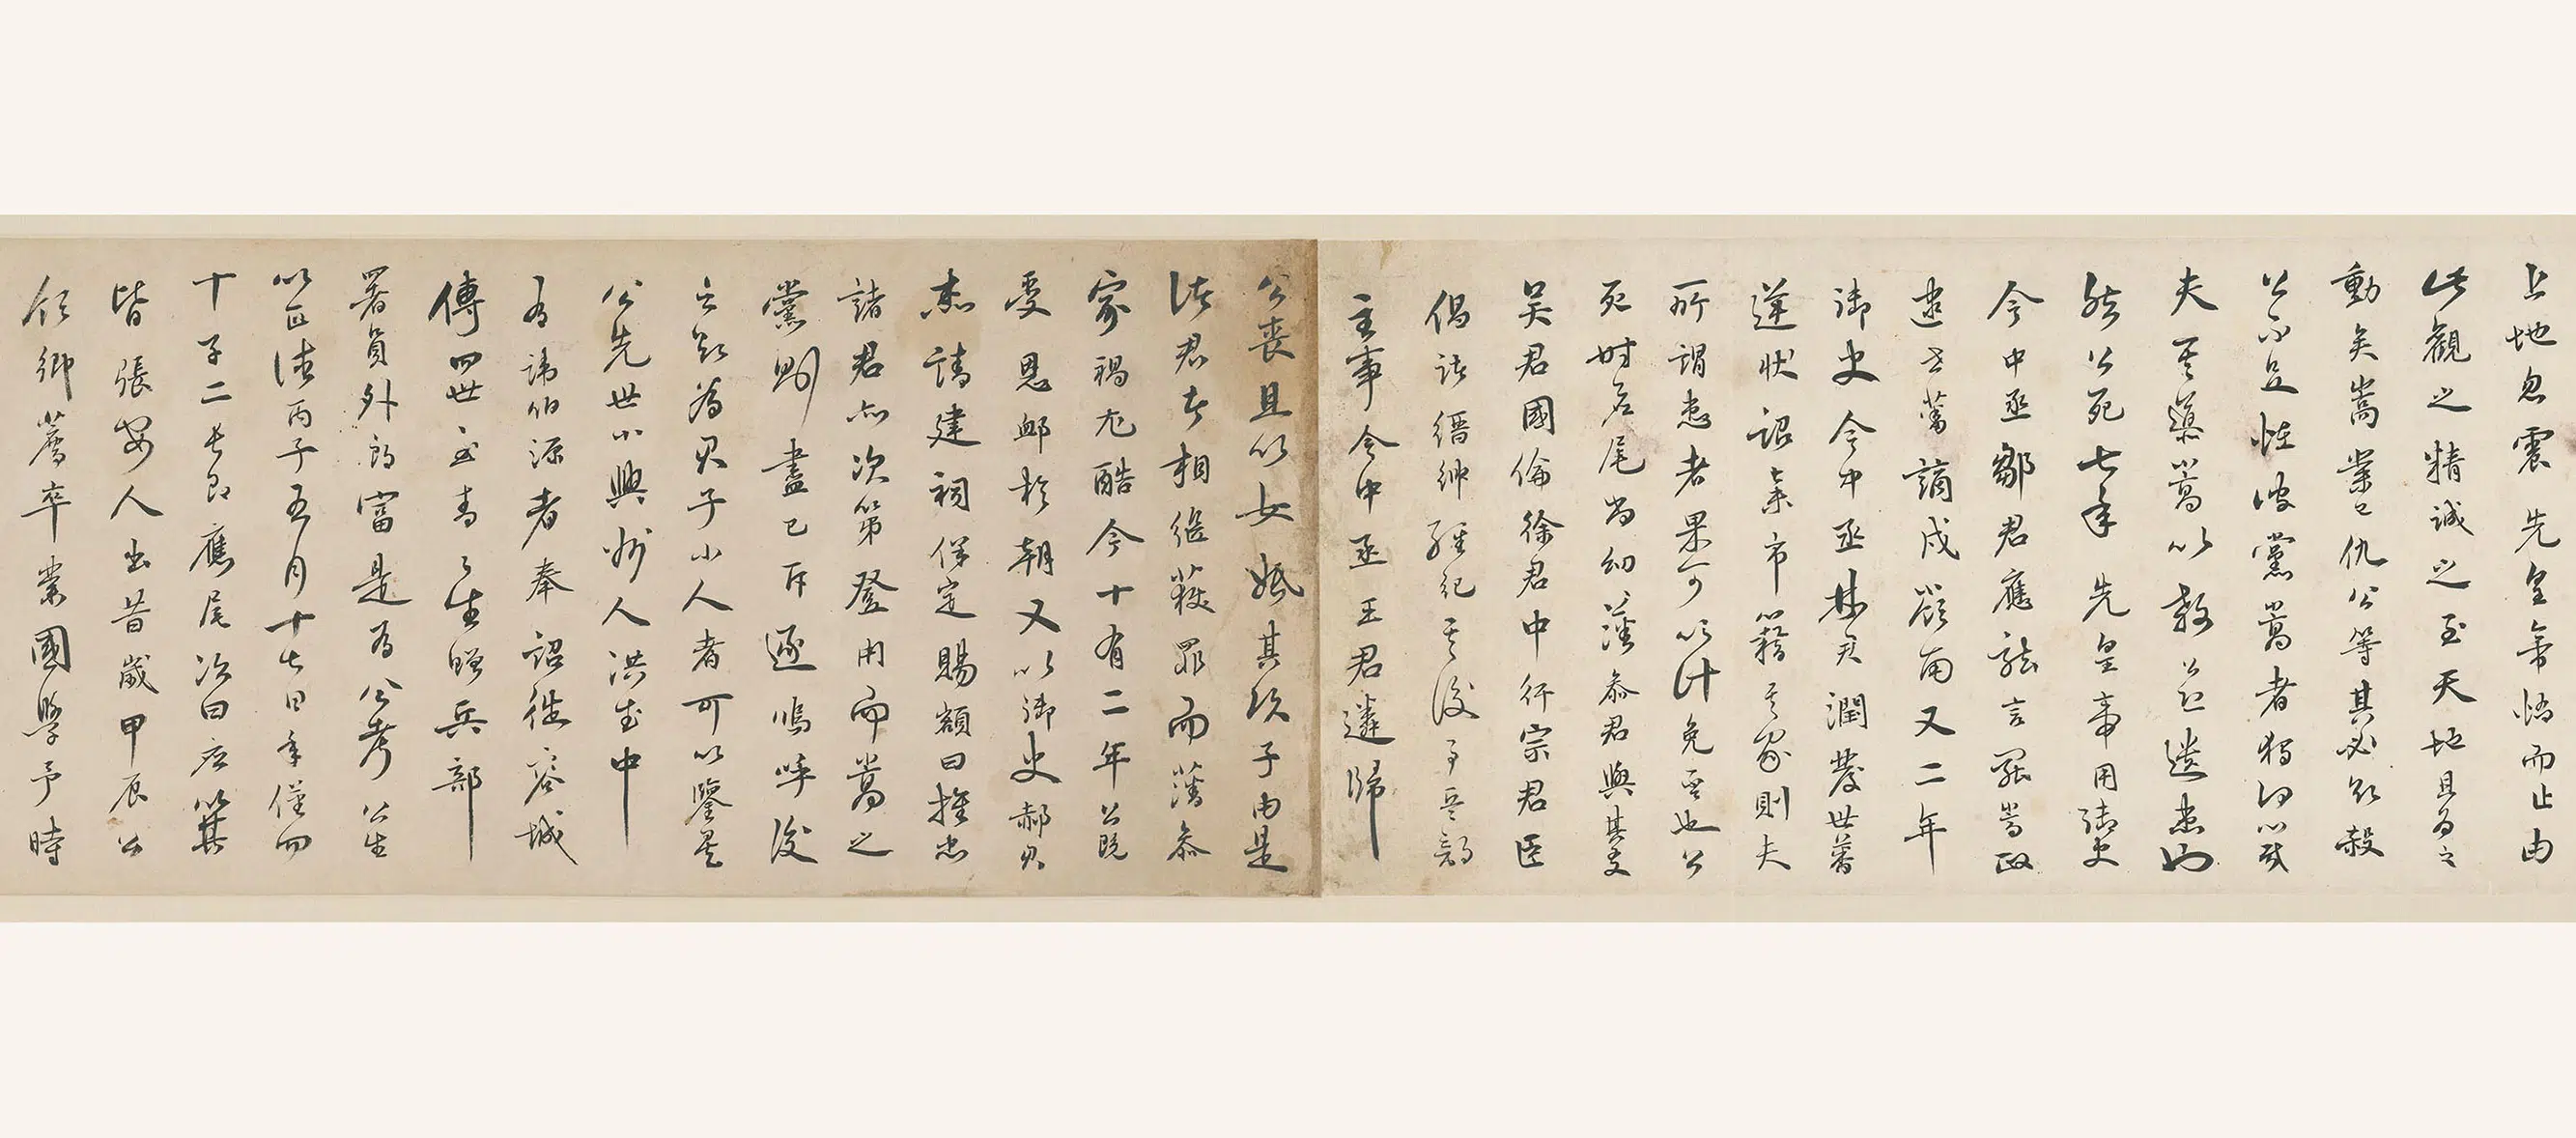 上地忽震先皇帝悟而止由
此觀之精誠之至天地且為之
動矣嵩業已仇公等其必欲殺
公不足怪彼黨嵩者獨何心哉
夫其導嵩以殺公恐遺患也
然公死七年先皇帝用御史
今中丞鄒君應龍言罷嵩政
逮世蕃謫戍嶺南又二年
御史今中丞林君潤發世蕃
逆狀詔棄市籍其家則夫
所謂患者果可以計免否也公
死時應尾尚幼藩參君與其友
吳君國倫徐君中行宗君臣
倡諸縉紳經紀其後事兵部
主事今中丞王君遴歸
公喪且以女婚其次子由是
諸君者相繼獲罪而藩參
家禍尤酷今十有二年公既
受恩卹於朝又以御史郝君
杰請建祠保定賜額曰旌忠
諸君亦次第登用而嵩之
黨則盡已斥逐嗚呼後
之欲為君子小人者可以鑒矣
公先世小興州人洪武中
有諱伯源者奉詔徙容城
傳四世至青青生贈兵部
署員外郎富是為公考公生
以正德丙子五月十七日年僅四
十子二長即應尾次曰應箕
皆張安人出昔歲甲辰公
領鄉薦卒業國學予時